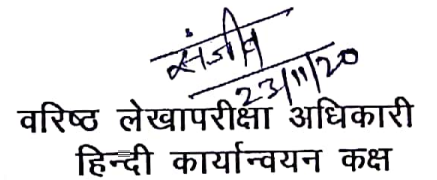 संजीव
23/11/20
वरिष्ठ लेखापरीक्षा अधिकारी
हिन्दी कार्यान्वयन कक्ष